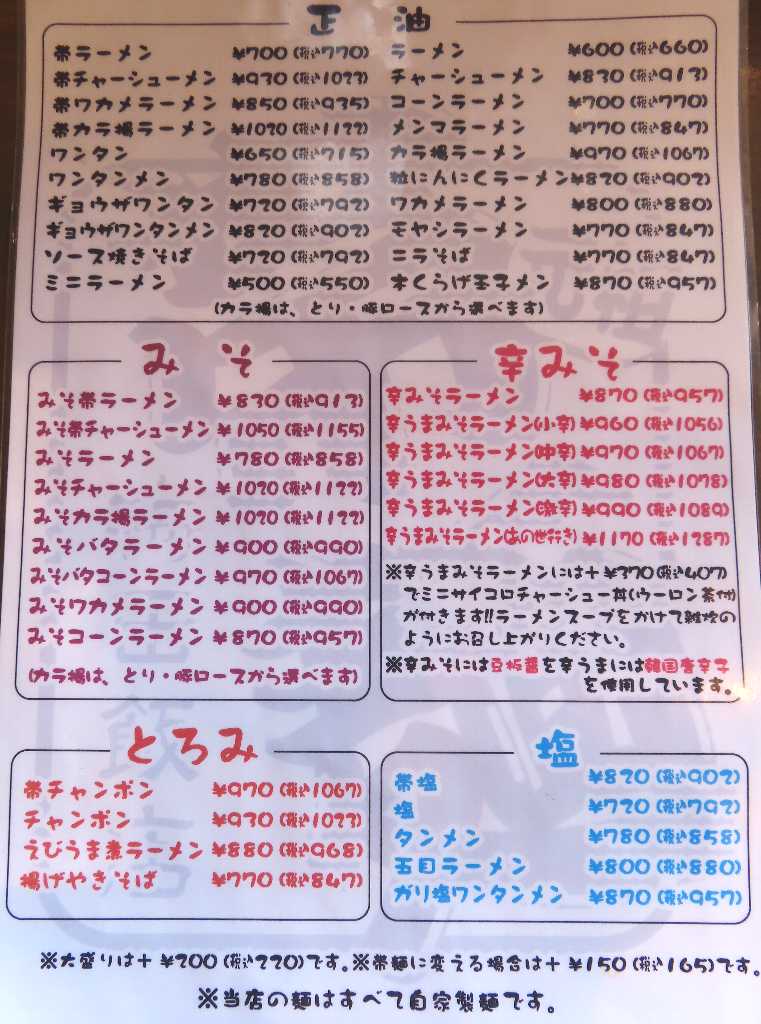 正油
帯ラーメン ¥700(税込770)
帯チャーシューメン ¥930(税込1023)
帯ワカメラーメン ¥850(税込935)
帯カラ揚ラーメン ¥1020(税込1122)
ワンタン ¥650(税込715)
ワンタンメン ¥780(税込858)
ギョウザワンタン ¥720(税込792)
ギョウザワンタンメン ¥820(税込902)
ソース焼きそば ¥720(税込792)
ミニラーメン ¥500(税込550)
ラーメン ¥600(税込660)
チャーシューメン ¥830(税込913)
コーンラーメン ¥700(税込770)
メンマラーメン ¥770(税込847)
カラ揚ラーメン ¥970(税込1067)
粒にんにくラーメン ¥820(税込902)
ワカメラーメン ¥800(税込880)
モヤシラーメン ¥770(税込847)
ニラそば ¥770(税込847)
木くらげ玉子メン ¥870(税込957)
(カラ揚は、とり・豚ロースから選べます)
みそ
みそ帯ラーメン ¥830(税込913)
みそ帯チャーシューメン ¥1050(税込1155)
みそラーメン ¥780(税込858)
みそチャーシューメン ¥1020(税込1122)
みそカラ揚ラーメン ¥1020(税込1122)
みそバタラーメン ¥900(税込990)
みそバタコーンラーメン ¥970(税込1067)
みそワカメラーメン ¥900(税込990)
みそコーンラーメン ¥870(税込957)
(カラ揚は、とり・豚ロースから選べます)
辛みそ
辛みそラーメン ¥870(税込957)
辛うまみそラーメン(小辛) ¥960(税込1056)
辛うまみそラーメン(中辛) ¥970(税込1067)
辛うまみそラーメン(大辛) ¥980(税込1078)
辛うまみそラーメン(激辛) ¥990(税込1089)
辛うまみそラーメン(あの世行き) ¥1170(税込1287)
※辛うまみそラーメンには+¥370(税込407)
でミニサイコロチャーシュー丼(ウーロン茶付)
が付きます!!ラーメンスープをかけて雑炊の
ようにお召し上がりください。
※辛みそには豆板醤を辛うまには韓国唐辛子
を使用しています。
とろみ
帯チャンポン ¥970(税込1067)
チャンポン ¥930(税込1023)
えびうま煮ラーメン ¥880(税込968)
揚げやきそば ¥770(税込847)
塩
帯塩 ¥820(税込902)
塩 ¥720(税込792)
タンメン ¥780(税込858)
五目ラーメン ¥800(税込880)
ガリ塩ワンタンメン ¥870(税込957)
※大盛りは+¥200(税込220)です。※帯麺に変える場合は+¥150(税込165)です。
※当店の麺はすべて自家製麺です。